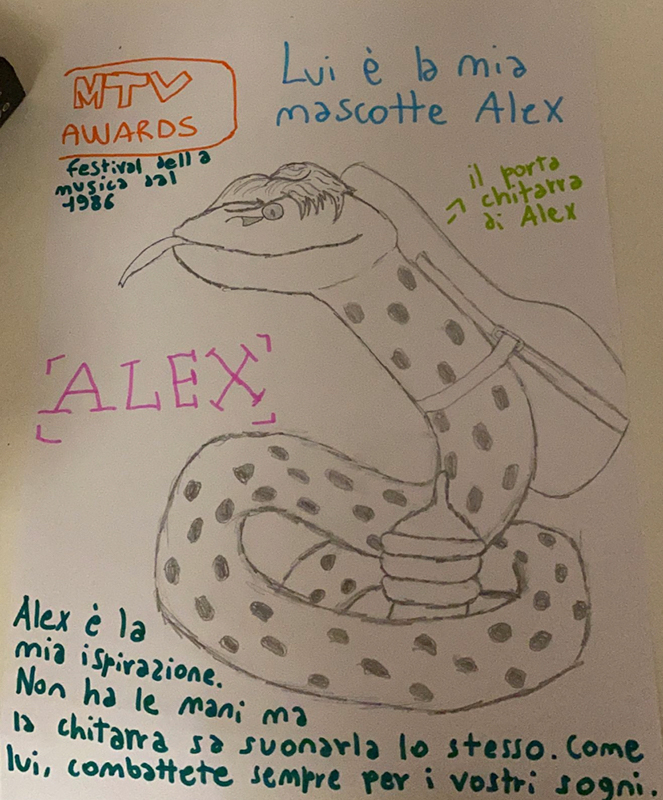 MTV
AWARDS
festival della
musica dal
1986
Lui è la mia
mascotte Alex
il porta
chitarra
di Alex
ALEX
Alex è la
mia ispirazione.
Non ha le mani ma
la chitarra sa suonarla lo stesso. Come
lui, combattete sempre per i vostri sogni.